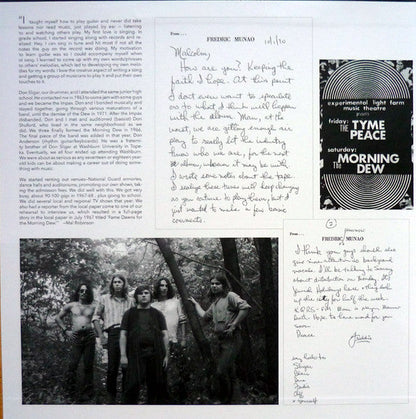 "I taught myself how to play guitar and never did take
lessons nor read music, just played by ear – listening
to and watching others play. My first love is singing. In
grade school, I started singing along with records and re-
alized: Hey, I can sing in tune and hit most if not all the
notes the guy on the record was doing. My motivation
to learn guitar was so I could accompany myself when
I'd sing. I learned to come up with my own words/phrases
to others' melodies, which led to developing my own melo-
dies for my words. I love the creative aspect of writing a song
and getting a group of musicians to play it and put their own
touches to it.
Don Sligar, our drummer, and I attended the same junior high
school. He contacted me in 1965 to come jam with some guys
and we became the Impax. Don and I bonded musically and
stayed together, going through various maturations of a
band, until the demise of the Dew in 1971. After the Impax
disbanded, Don and I met and auditioned (bassist) Don
Shuford, who lived in the same neighborhood as we
did. We three finally formed the Morning Dew in 1966.
The final piece of the band was added in that year, Don
Anderson (rhythm guitar/keyboards). He was a fraterni-
ty brother of Don Sligar at Washburn University in Tope-
ka. Eventually, we all four ended up attending Washburn.
We were about as serious as any seventeen or eighteen year-
old kids can be about making a career out of doing some-
thing with music.
We started renting our venues–National Guard armories,
dance halls and auditoriums, promoting our own shows, tak-
ing the admission fees. We did well with this. We got very
busy about 90-100 gigs in 1967-68, plus going to school.
We did several local and regional TV shows that year. We
also had a reporter from the local paper come to one of our
rehearsal to interview us, which resulted in a full-page
story in the local paper in July 1967 titled 'Fame Dawns for
the Morning Dew.'" –Mal Robinson
From...
FREDRIC MUNAO
Malcolm,
How are you? Keeping the
faith I hope. At this point
I don't even want to speculate
as to what I think will happen
with the album. Man, at the
worst, we are getting enough air
play to really let the industry
know who we are, for the next
album, whoever it may be with.
I wrote some notes about the tape.
I realize these tunes will keep changing
as you mature to play them, but I
just wanted to make a few basic
comments.
experimental light farm
music theatre
from
friday:
THE TYME
PEACE
saturday:
THE MORNING
DEW
From...
(2)
FREDRIC MUNAO
I think you guys should also
give more attention to background
vocals. I'll be talking to Sonny
about distribution on Monday, the
Jewish Holidays have things held
up the city for half the week.
Hope to have word for you
soon.
Peace